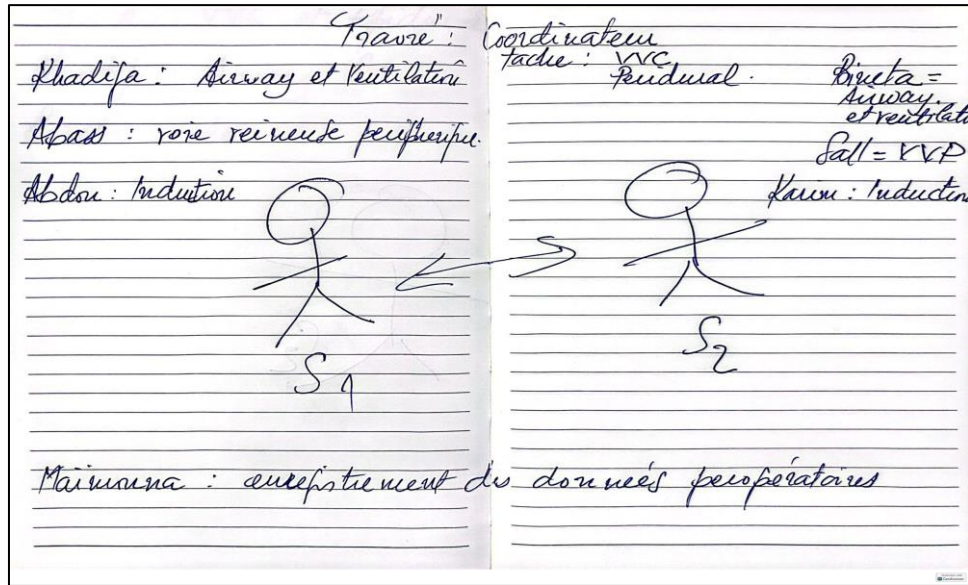 Traoré : Coordinateur
tache : VVC
Peridural.
Khadija : Airway et Ventilation
Abass : voie veineuse peripherique.
Abdou : Induction
Bineta =
Airway.
et ventilati
Sall = VVP
Karim : Induction
S1
S2
Maïmouna : enregistrement des données peropératoires